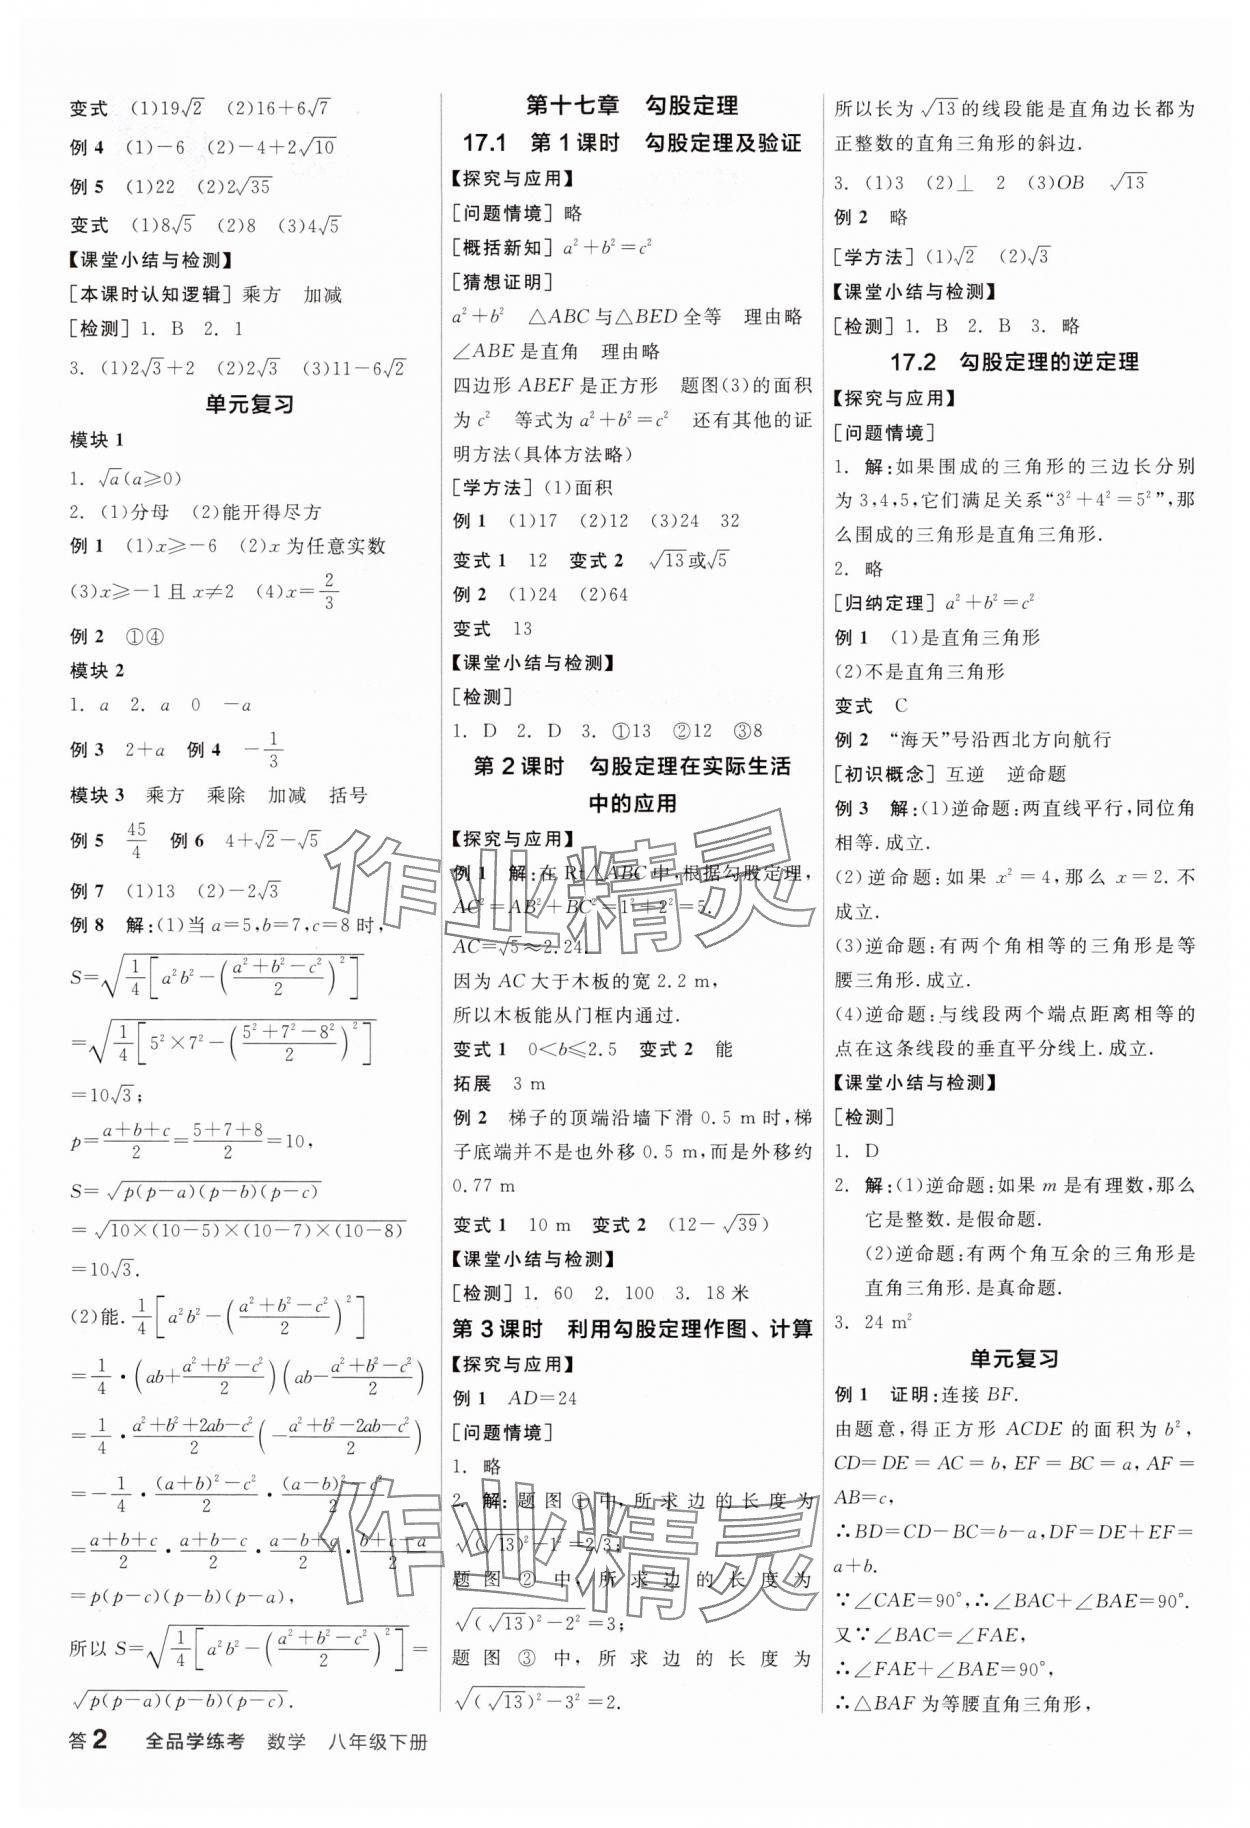 变式 (1)19√2 (2)16+6√7
例 4 (1)-6 (2)-4+2√10
例 5 (1)22 (2)2√35
变式 (1)8√5 (2)8 (3)4√5
【课堂小结与检测】
[本课时认知逻辑]乘方 加减
[检测]1. B 2. 1
3. (1)2√3+2 (2)2√3 (3)11-6√2
单元复习
模块 1
1. √a(a⩾0)
2. (1)分母 (2)能开得尽方
例 1 (1)x⩾-6 (2)x 为任意实数
(3)x⩾-1 且 x≠2 (4)x=2/3
例 2 ①④
模块 2
1. a 2. a 0 -a
例 3 2+a 例 4 -1/3
模块 3 乘方 乘除 加减 括号
例 5 45/4 例 6 4+√2-√5
例 7 (1)13 (2)-2√3
例 8 解:(1)当 a=5,b=7,c=8 时,
S=√(1/4[a²b²-((a²+b²-c²)/2)²])
=√(1/4[5²×7²-((5²+7²-8²)/2)²])
=10√3;
p=(a+b+c)/2=(5+7+8)/2=10,
S=√(p(p-a)(p-b)(p-c))
=√(10×(10-5)×(10-7)×(10-8))
=10√3.
(2)能.1/4[a²b²-((a²+b²-c²)/2)²]
=1/4·(ab+(a²+b²-c²)/2)(ab-(a²+b²-c²)/2)
=1/4·(a²+b²+2ab-c²)/2(-(a²+b²-2ab-c²)/2)
=-1/4·((a+b)²-c²)/2·((a-b)²-c²)/2
=(a+b+c)/2·(a+b-c)/2·(a-b+c)/2·(b+c-a)/2
=p(p-c)(p-b)(p-a),
所以 S=√(1/4[a²b²-((a²+b²-c²)/2)²])=
√(p(p-a)(p-b)(p-c)).
第十七章 勾股定理
17.1 第 1 课时 勾股定理及验证
【探究与应用】
[问题情境]略
[概括新知]a²+b²=c²
[猜想证明]
a²+b² △ABC与△BED 全等 理由略
∠ABE 是直角 理由略
四边形 ABEF 是正方形 题图(3)的面积
为 c² 等式为 a²+b²=c² 还有其他的证
明方法(具体方法略)
[学方法](1)面积
例 1 (1)17 (2)12 (3)24 32
变式 1 12 变式 2 √13或√5
例 2 (1)24 (2)64
变式 13
【课堂小结与检测】
[检测]
1. D 2. D 3. ①13 ②12 ③8
第 2 课时 勾股定理在实际生活
中的应用
【探究与应用】
例 1 解:在 Rt△ABC 中,根据勾股定理,
AC²=AB²+BC²=1²+2²=5.
AC=√5≈2.24.
因为 AC 大于木板的宽 2.2 m,
所以木板能从门框内通过.
变式 1 0<b⩽2.5 变式 2 能
拓展 3 m
例 2 梯子的顶端沿墙下滑 0.5 m 时,梯
子底端并不是也外移 0.5 m,而是外移约
0.77 m
变式 1 10 m 变式 2 (12-√39)
【课堂小结与检测】
[检测]1. 60 2. 100 3. 18 米
第 3 课时 利用勾股定理作图、计算
【探究与应用】
例 1 AD=24
[问题情境]
1. 略
2. 解:题图①中,所求边的长度为
√((√13)²-1²)=2√3;
题图②中,所求边的长度为
√((√13)²-2²)=3;
题图③中,所求边的长度为
√((√13)²-3²)=2.
所以长为√13的线段能是直角边长都为
正整数的直角三角形的斜边.
3. (1)3 (2)⊥ 2 (3)OB √13
例 2 略
[学方法](1)√2 (2)√3
【课堂小结与检测】
[检测]1. B 2. B 3. 略
17.2 勾股定理的逆定理
【探究与应用】
[问题情境]
1. 解:如果围成的三角形的三边长分别
为 3,4,5,它们满足关系“3²+4²=5²”,那
么围成的三角形是直角三角形.
2. 略
[归纳定理]a²+b²=c²
例 1 (1)是直角三角形
(2)不是直角三角形
变式 C
例 2 “海天”号沿西北方向航行
[初识概念]互逆 逆命题
例 3 解:(1)逆命题:两直线平行,同位角
相等.成立.
(2)逆命题:如果 x²=4,那么 x=2. 不
成立.
(3)逆命题:有两个角相等的三角形是等
腰三角形.成立.
(4)逆命题:与线段两个端点距离相等的
点在这条线段的垂直平分线上.成立.
【课堂小结与检测】
[检测]
1. D
2. 解:(1)逆命题:如果 m 是有理数,那么
它是整数.是假命题.
(2)逆命题:有两个角互余的三角形是
直角三角形.是真命题.
3. 24 m²
单元复习
例 1 证明:连接 BF.
由题意,得正方形 ACDE 的面积为 b²,
CD=DE=AC=b,EF=BC=a,AF=
AB=c,
∴BD=CD-BC=b-a,DF=DE+EF=
a+b.
∵∠CAE=90°,∴∠BAC+∠BAE=90°.
又∵∠BAC=∠FAE,
∴∠FAE+∠BAE=90°,
∴△BAF 为等腰直角三角形,
作业精灵
作业精灵
答 2 全品学练考 数学 八年级下册